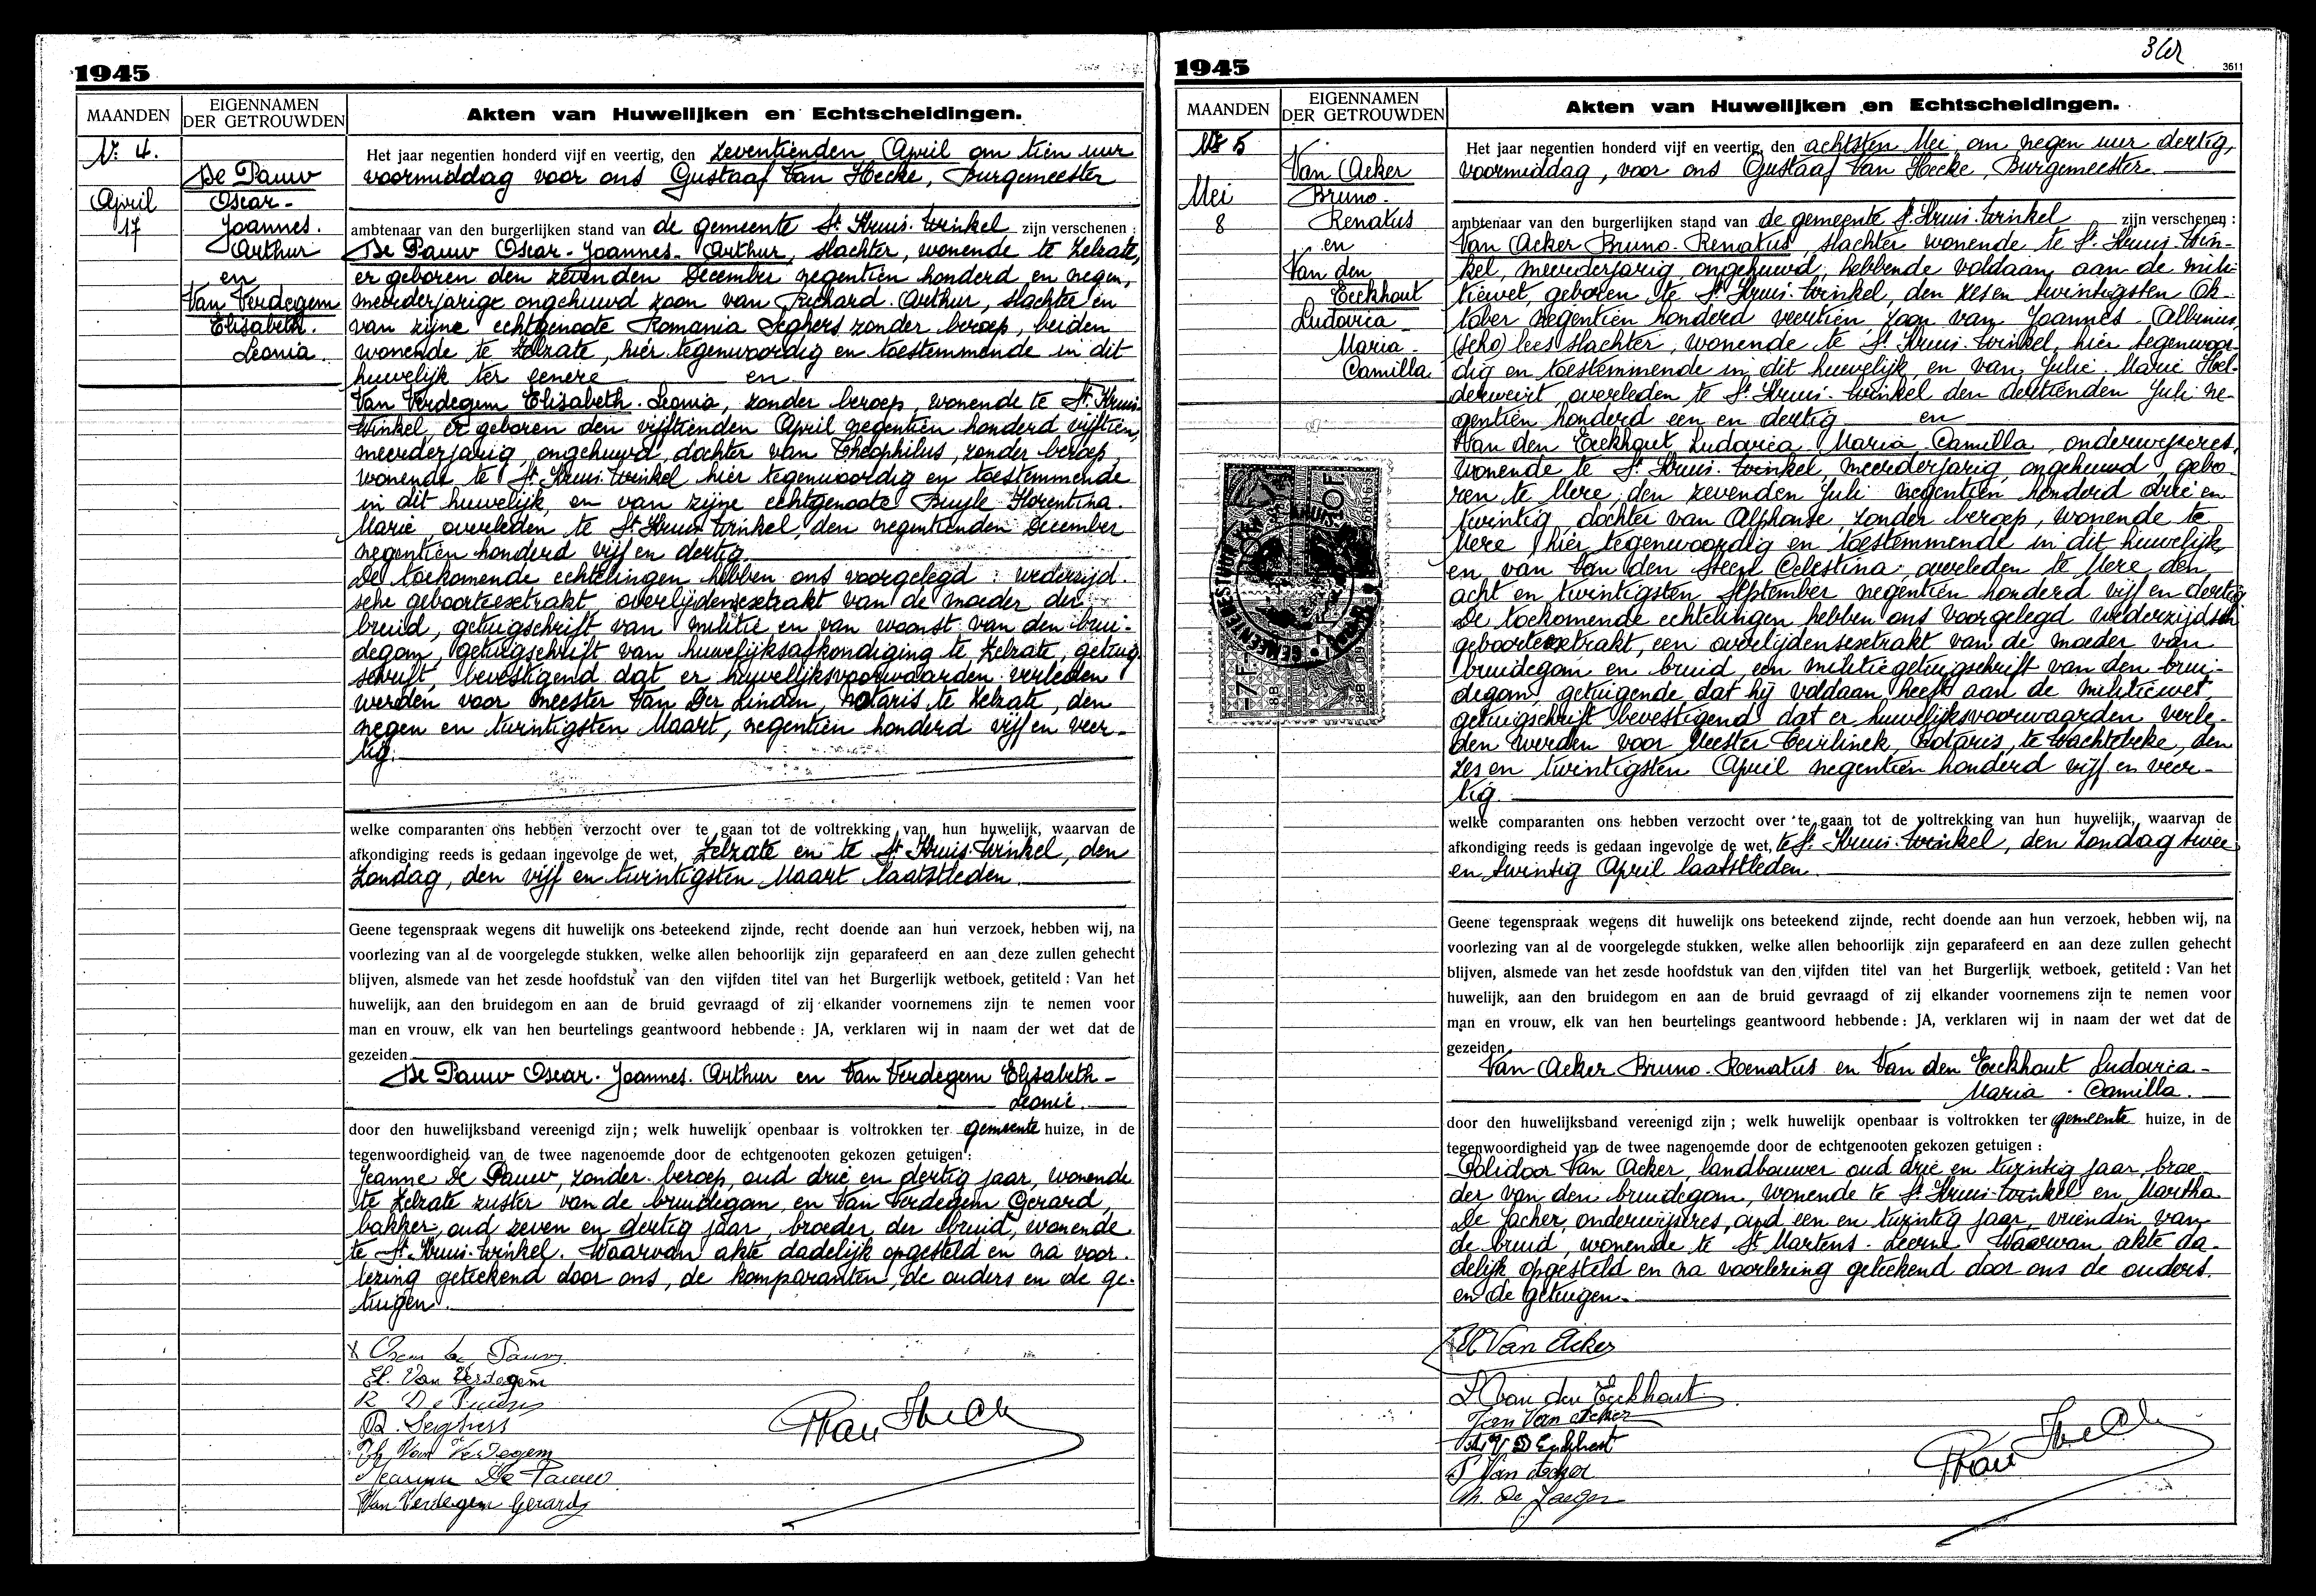 1945
MAANDEN
EIGENNAMEN
DER GETROUWDEN
Akten van Huwelijken en Echtscheidingen.
N: 4.
April
17
De Pauw
Oscar-
Joannes.
Arthur
en
Van Verdegem
Elisabeth.
Leonia.
Het jaar negentien honderd vijf en veertig, den zeventienden April om tien uur
voormiddag voor ons Gustaaf Van Hecke, Burgemeester
ambtenaar van den burgerlijken stand van de gemeente St Kruis-Winkel zijn verschenen:
De Pauw Oscar-Joannes-Arthur, slachter, wonende te Zelzate,
er geboren den zevenden December negentien honderd en negen,
meerderjarige ongehuwd zoon van Richard-Arthur, slachter en
van zijne echtgenoote Romania Seghers zonder beroep, beiden
wonende te Zelzate, hier tegenwoordig en toestemmende in dit
huwelijk ter eenere en
Van Verdegem Elisabeth-Leonia, zonder beroep, wonende te St Kruis-
Winkel, er geboren den vijftienden April negentien honderd vijftien,
meerderjarig, ongehuwd, dochter van Theophilus, zonder beroep,
wonende te St Kruis-Winkel hier tegenwoordig en toestemmende
in dit huwelijk, en van zijne echtgenoote Buyle Florentina-
Marie, overleden te St Kruis-Winkel, den negentienden December
negentien honderd vijf en dertig
De toekomende echtelingen hebben ons voorgelegd: wederzijd-
sche geboorteexetrakt, overlijdensexetrakt van de moeder der
bruid, getuigschrift van militie en van woonst van den brui-
degom, getuigschrift van huwelijksafkondiging te Zelzate, getuig
schrift, bevestigend dat er huwelijksvoorwaarden verleden
werden voor meester Van Der Linden, notaris te Zelzate, den
negen en twintigsten Maart, negentien honderd vijf en veer-
tig.
welke comparanten ons hebben verzocht over te gaan tot de voltrekking van hun huwelijk, waarvan de
afkondiging reeds is gedaan ingevolge de wet, Zelzate en te St Kruis-Winkel, den
Zondag, den vijf en twintigsten Maart laatstleden.
Geene tegenspraak wegens dit huwelijk ons beteekend zijnde, recht doende aan hun verzoek, hebben wij, na
voorlezing van al de voorgelegde stukken, welke allen behoorlijk zijn geparafeerd en aan deze zullen gehecht
blijven, alsmede van het zesde hoofdstuk van den vijfden titel van het Burgerlijk wetboek, getiteld: Van het
huwelijk, aan den bruidegom en aan de bruid gevraagd of zij elkander voornemens zijn te nemen voor
man en vrouw, elk van hen beurtelings geantwoord hebbende: JA, verklaren wij in naam der wet dat de
gezeiden
De Pauw Oscar-Joannes-Arthur en Van Verdegem Elisabeth-
Leonie.
door den huwelijksband vereenigd zijn; welk huwelijk openbaar is voltrokken ter gemeente huize, in de
tegenwoordigheid van de twee nagenoemde door de echtgenooten gekozen getuigen:
Jeanne De Pauw, zonder beroep, oud drie en dertig jaar, wonende
te Zelzate zuster van de bruidegom, en Van Verdegem Gerard,
bakker, oud zeven en dertig jaar, broeder der bruid, wonende
te St Kruis-Winkel. Waarvan akte dadelijk opgesteld en na voor-
lezing geteekend door ons, de komparanten, de ouders en de ge-
tuigen.
Oscar De Pauw
El. Van Verdegem
R. De Pauw
R. Seghers
Th. Van Verdegem
De Pauw
Van Verdegem Gerard
1945
3611
MAANDEN
EIGENNAMEN
DER GETROUWDEN
Akten van Huwelijken en Echtscheidingen.
Nr 5
Mei
8
Van Acker
Bruno-
Renatus
en
Van den
Eeckhout
Ludovica
Maria-
Camilla
Het jaar negentien honderd vijf en veertig, den achtsten Mei, om negen uur dertig,
voormiddag, voor ons Gustaaf Van Hecke, Burgemeester
ambtenaar van den burgerlijken stand van de gemeente St Kruis-Winkel zijn verschenen:
Van Acker Bruno-Renatus, slachter wonende te St Kruis-Win-
kel, meerderjarig, ongehuwd, hebbende voldaan aan de mili-
tiewet, geboren te St Kruis-Winkel, den zes en twintigsten Ok-
tober negentien honderd veertien, zoon van Joannes-Albinus
lees slachter, wonende te St Kruis-Winkel, hier tegenwoor-
dig en toestemmende in dit huwelijk en van Julie-Marie Hel-
derweirt, overleden te St Kruis-Winkel den dertienden Juli ne-
gentien honderd een en dertig en
Van den Eeckhout Ludovica Maria Camilla, onderwijzeres,
wonende te St Kruis-Winkel, meerderjarig, ongehuwd gebo-
ren te Mere, den zevenden Juli negentien honderd drie en
twintig, dochter van Alphonse, zonder beroep, wonende te
Mere, hier tegenwoordig en toestemmende in dit huwelijk,
en van Van den Steen Celestina overleden te Mere den
acht en twintigsten September negentien honderd vijf en dertig
De toekomende echtelingen hebben ons voorgelegd wederzijdsch
geboorteextrakt, een overlijdensexetrakt van de moeder van
bruidegom en bruid, een militiegetuigschrift van den brui-
degom, getuigende dat hij voldaan heeft aan de militiewet,
getuigschrift bevestigend dat er huwelijksvoorwaarden verle-
den werden voor Meester Notaris, te Wachtebeke, den
zes en twintigsten April negentien honderd vijf en veer-
tig.
welke comparanten ons hebben verzocht over te gaan tot de voltrekking van hun huwelijk, waarvan de
afkondiging reeds is gedaan ingevolge de wet, te St Kruis-Winkel, den Zondag twee
en twintig April laatstleden
Geene tegenspraak wegens dit huwelijk ons beteekend zijnde, recht doende aan hun verzoek, hebben wij, na
voorlezing van al de voorgelegde stukken, welke allen behoorlijk zijn geparafeerd en aan deze zullen gehecht
blijven, alsmede van het zesde hoofdstuk van den vijfden titel van het Burgerlijk wetboek, getiteld: Van het
huwelijk, aan den bruidegom en aan de bruid gevraagd of zij elkander voornemens zijn te nemen voor
man en vrouw, elk van hen beurtelings geantwoord hebbende: JA, verklaren wij in naam der wet dat de
gezeiden
Van Acker Bruno-Renatus en Van den Eeckhout Ludovica-
Maria-Camilla.
door den huwelijksband vereenigd zijn; welk huwelijk openbaar is voltrokken ter gemeente huize, in de
tegenwoordigheid van de twee nagenoemde door de echtgenooten gekozen getuigen:
Polidoor Van Acker, landbouwer oud drie en twintig jaar, broe-
der van den bruidegom, wonende te St Kruis-Winkel en Martha
De Jaeher, onderwijzeres, oud een en twintig jaar, vriendin van
de bruid, wonende te St Martens-Leerne Waarvan akte da-
delijk opgesteld en na voorlezing geteekend door ons de ouders
en de getuigen.
Van Acker
L Van den Eeckhout
Van Acker
P Van Acker
M. De Jaeger